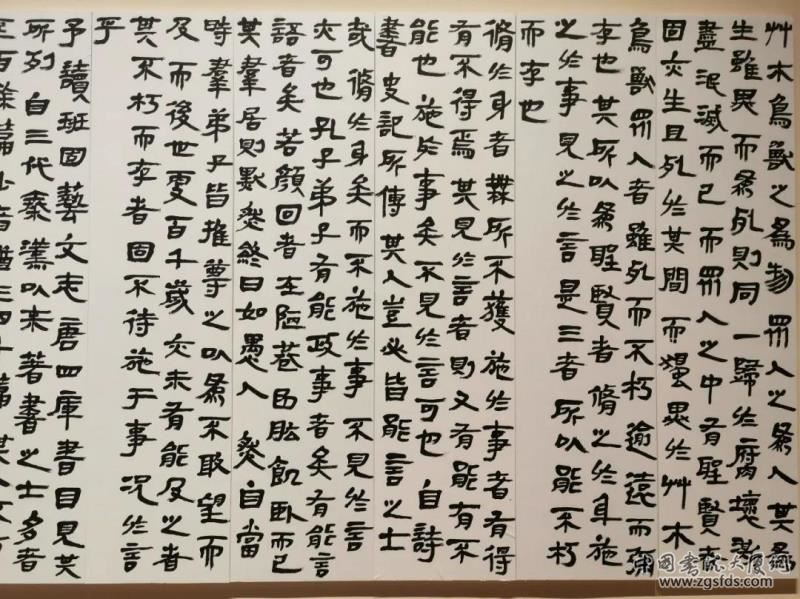 艸木鳥獸之為物眾人之為人其為
生雖異而為死則同一歸於腐壞澌
盡泯滅而已而眾人之中有聖賢者
固亦生且死於其間而獨異於艸木
鳥獸眾人者雖死而不朽逾遠而彌
存也其所以為聖賢者脩之於身施
之於事見之於言是三者所以能不朽
而存也
脩於身者無所不獲施於事者有得
有不得焉其見於言者則又有能有不
能也施於事矣不見於言可也自詩
書史記所傳其人豈必皆能言之士
哉脩於身矣而不施於事不見於言
亦可也孔子弟子有能政事者矣有能言
語者矣若顏回者在陋巷曲肱飢臥而已
其羣居則默然終日如愚人然自當
時羣弟子皆推尊之以為不敢望而
及而後世更百千歲亦未有能及之者
其不朽而存者固不待施于事況於言
乎
予讀班固藝文志唐四庫書目見其
所列自三代秦漢以來著書之士多者
至百餘篇少者猶三四十篇其人不可
www.zgsfds.com